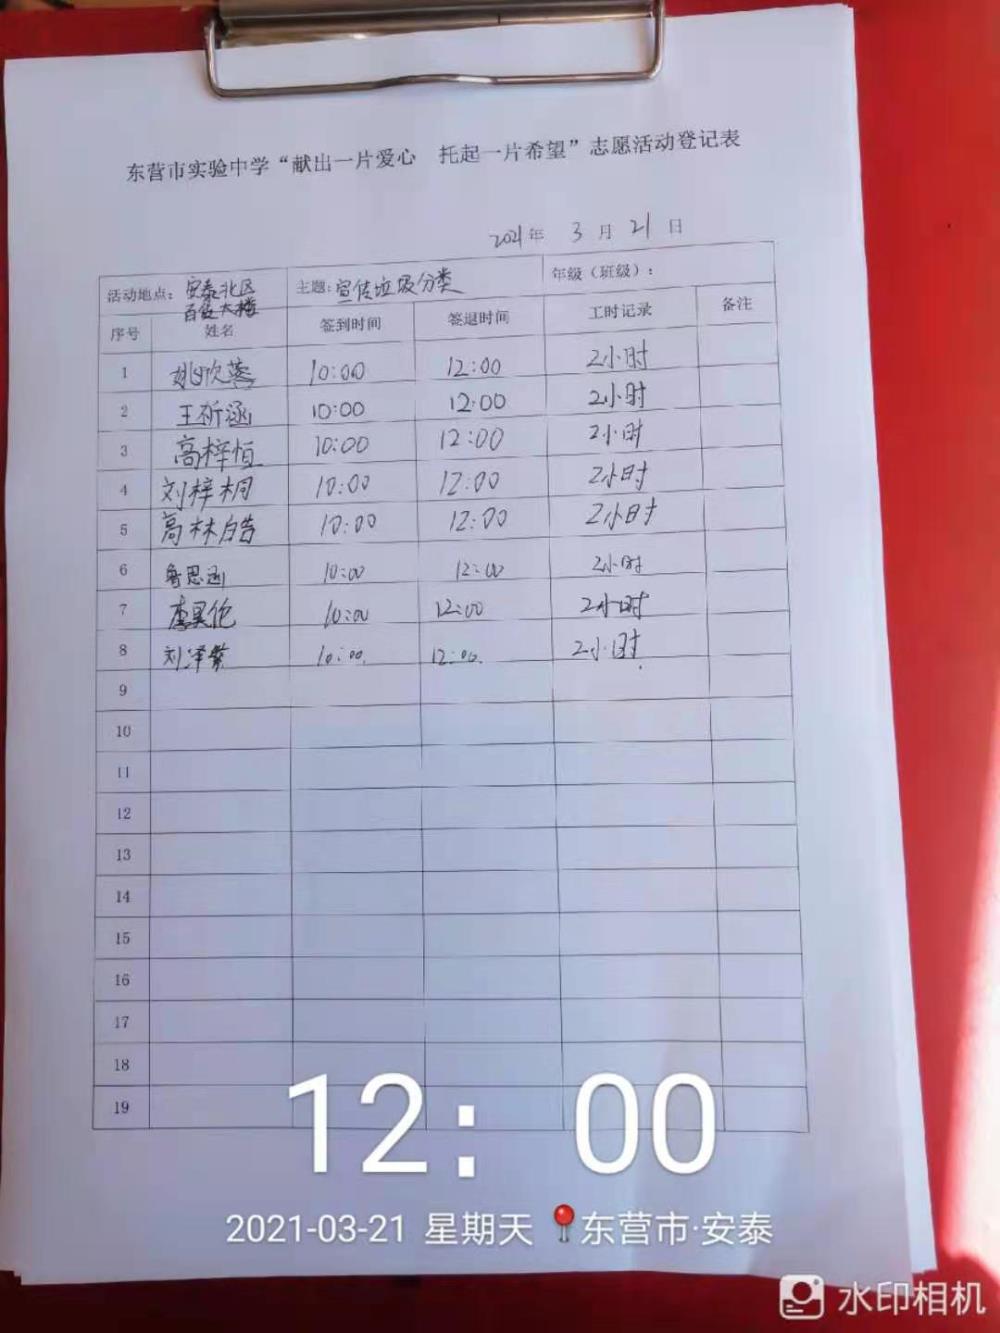 东营市实验中学“献出一片爱心 托起一片希望”志愿活动登记表
2021年 3 月 21 日
活动地点：安泰北区百货大楼 主题：宣传垃圾分类 年级（班级）：
序号 姓名 签到时间 签退时间 工时记录 备注
1 姚欣蕊 10:00 12:00 2小时
2 王祈涵 10:00 12:00 2小时
3 高梓恒 10:00 12:00 2小时
4 刘梓桐 10:00 12:00 2小时
5 高林皓 10:00 12:00 2小时
6 鲁思涵 10:00 12:00 2小时
7 李昊伦 10:00 12:00 2小时
8 刘泽 10:00 12:00 2小时
9
10
11
12
13
14
15
16
17
18
19
12：00
2021-03-21 星期天 东营市·安泰
水印相机